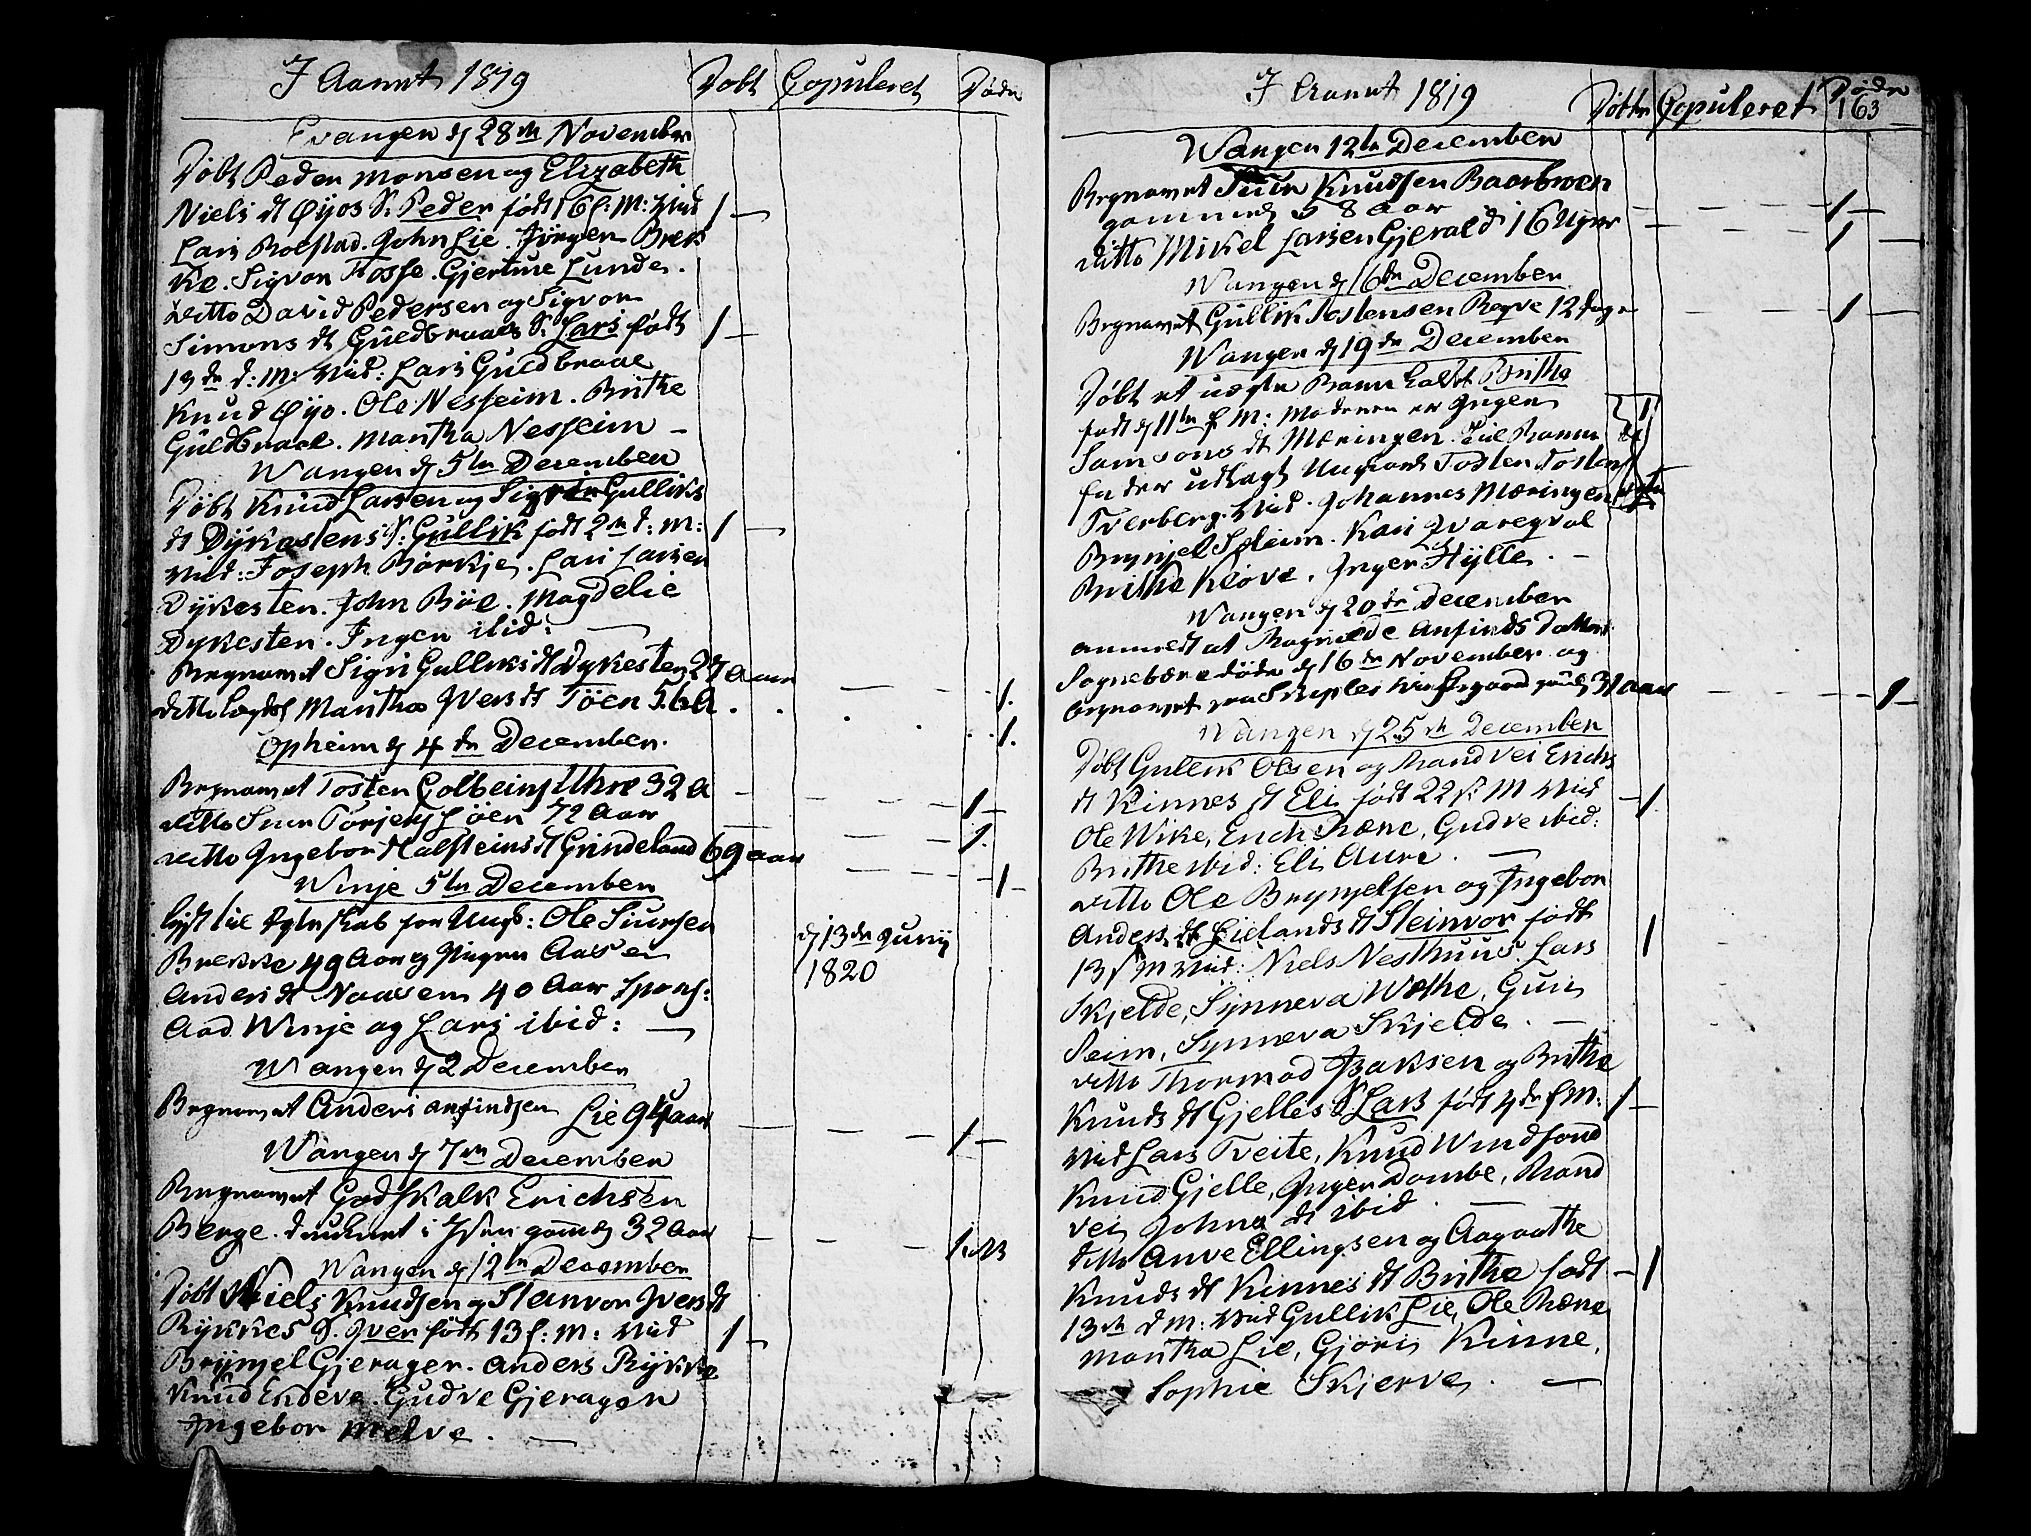 I Aaret 1819 Døbt Copuleret Døde
Evangen d 28de November
Døbt Peder Monsen og Elizabeth
Niels dt Øyos S: Peder født 16 f: M: Vid 1
Lars Rokstad. John Lie. Jörgen Brek
ke. Sigvor Fosse. Gjertrue Lunde.
ditto David Pedersen og Sigvor
Simons dt Guldbraaes S: Lars født 1
13de d: M: Vid: Lars Guldbraae
Knud Øyo. Ole Nesheim. Brithe
Guldbraae. Martha Nesheim
Wangen d 5te December
Døbt Knud Larsen og Sigrie Gulliks
dt Dykestens S: Gullik født 2de d: M: 1
Vid: Joseph Børkje. Lars Larsen
Dykesten. John Böe. Magdelie
Dykesten. Ingen ibid:
Begravet Sigri Gulliks dt Dykesten 27 Aar 1.
ditto Martha Ivers dt Töen 56 A 1.
Opheim d 4de December.
Begravet Tosten Colbeins Uhre 32 A 1
ditto Siur Torjers Löen 72 Aar 1.
ditto Ingebor Halsteins dt Grindeland 69 aar 1
Winje 5te December
lyst til Egteskab for Ungk: Ole Siursen d 13de Junij
Brekke 49 Aar og Pigen Aasen 1820
Anders dt Naasen 40 Aar Spons:
Aad Winje og Lars ibid:
Wangen d 2 December
Begravet Anders Anfindsen Lie 94 aar 1
Wangen d 7de December
Begravet Godskalk Erichsen
Berge. druknet i Isen gamel 32 Aar 1.
Wangen d 12te December
Døbt Niels Knudsen og Stenvor Ivers dt
Rykkes S. Iver født 13 f: M: Vid 1
Brynjel Gjerager. Anders Rykke
Knud Endeve. Gudve Gjerager
Ingebor Melve.
I Aaret 1819 Døbte Copuleret Døde
163
Wangen 12te December
Begravet Siur Knudsen Baarbroen
gammel 58 Aar 1
ditto Mikel Larsen Gjerald 16 Uger 1
Wangen d 16de December
Begravet Gullik Tostensen Rogve 12 dage 1
Wangen d 19de December
Døbt et uægte Barn kaldet Brithe
født d 11te f M: Moderen er Ingen 1
Samsons dt Mæringen. Til Barne
fader udlagt Ungkarl Tosten Tostens
Tverberg. Vid. Johannes Mæringen
Brynjel Seleim. Kari Qvareqval
Brithe Klöve. Inger Hylle.
Wangen d 20de December
anmeldt at Ragnilde Anfinds Datter
Sognebære døde d 16de November og
begravet paa Kirkegaard 31 aar 1
Wangen d 25de December
Døbt Gullik Olsen og Brandvei Erichs
dt Kinnes dt Eli født 22 f: M Vid 1
Ole Wike, Erich Ræne, Gudve ibid:
Brithe ibid: Eli Aure.
ditto Ole Brynjelsen og Ingebor
Anders dt Lielands dt Steinvor født 1
13 f M Vid: Niels Nesthuus. Lars
Skjelde, Synneva Wethe, Guri
Seim, Synneva Skjelde.
ditto Thormod Isaksen og Brithe
Knuds dt Gjelles S: Lars født 4de f M: 1
Vid Lars Tveite, Knud Windsand
Knud Gjelle, Inger Dombe, Brand
vei Johns dt ibid
ditto Anve Ellingsen og Aagaathe
Knuds dt Kinnes dt Brithe født 1
13de d M: Vid Gullik Lie, Ole Ræne
Martha Lie, Gjoris Kinne,
Sophie Skjerve.